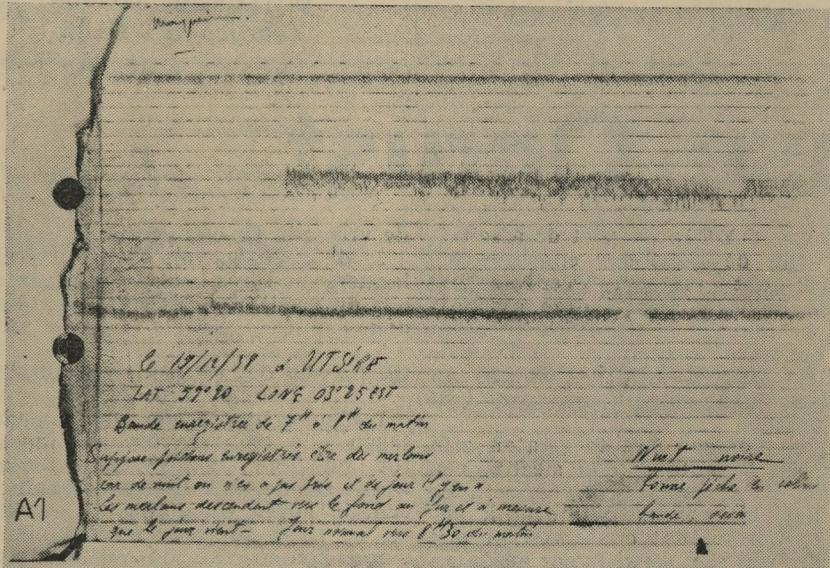 le 19/12/58 à UTSIRE
LAT 59°20 LONG 03°25 EST
Bande enregistrée de 7H à 8H du matin
Suppose poissons enregistrés être des merlans
car de nuit on n'en a pas pris et de jour il y en a
Les merlans descendent vers le fond au fur et à mesure
que le jour vient - Jour normal vers 8H30 du matin
Nuit noire
bonne pêche
A1